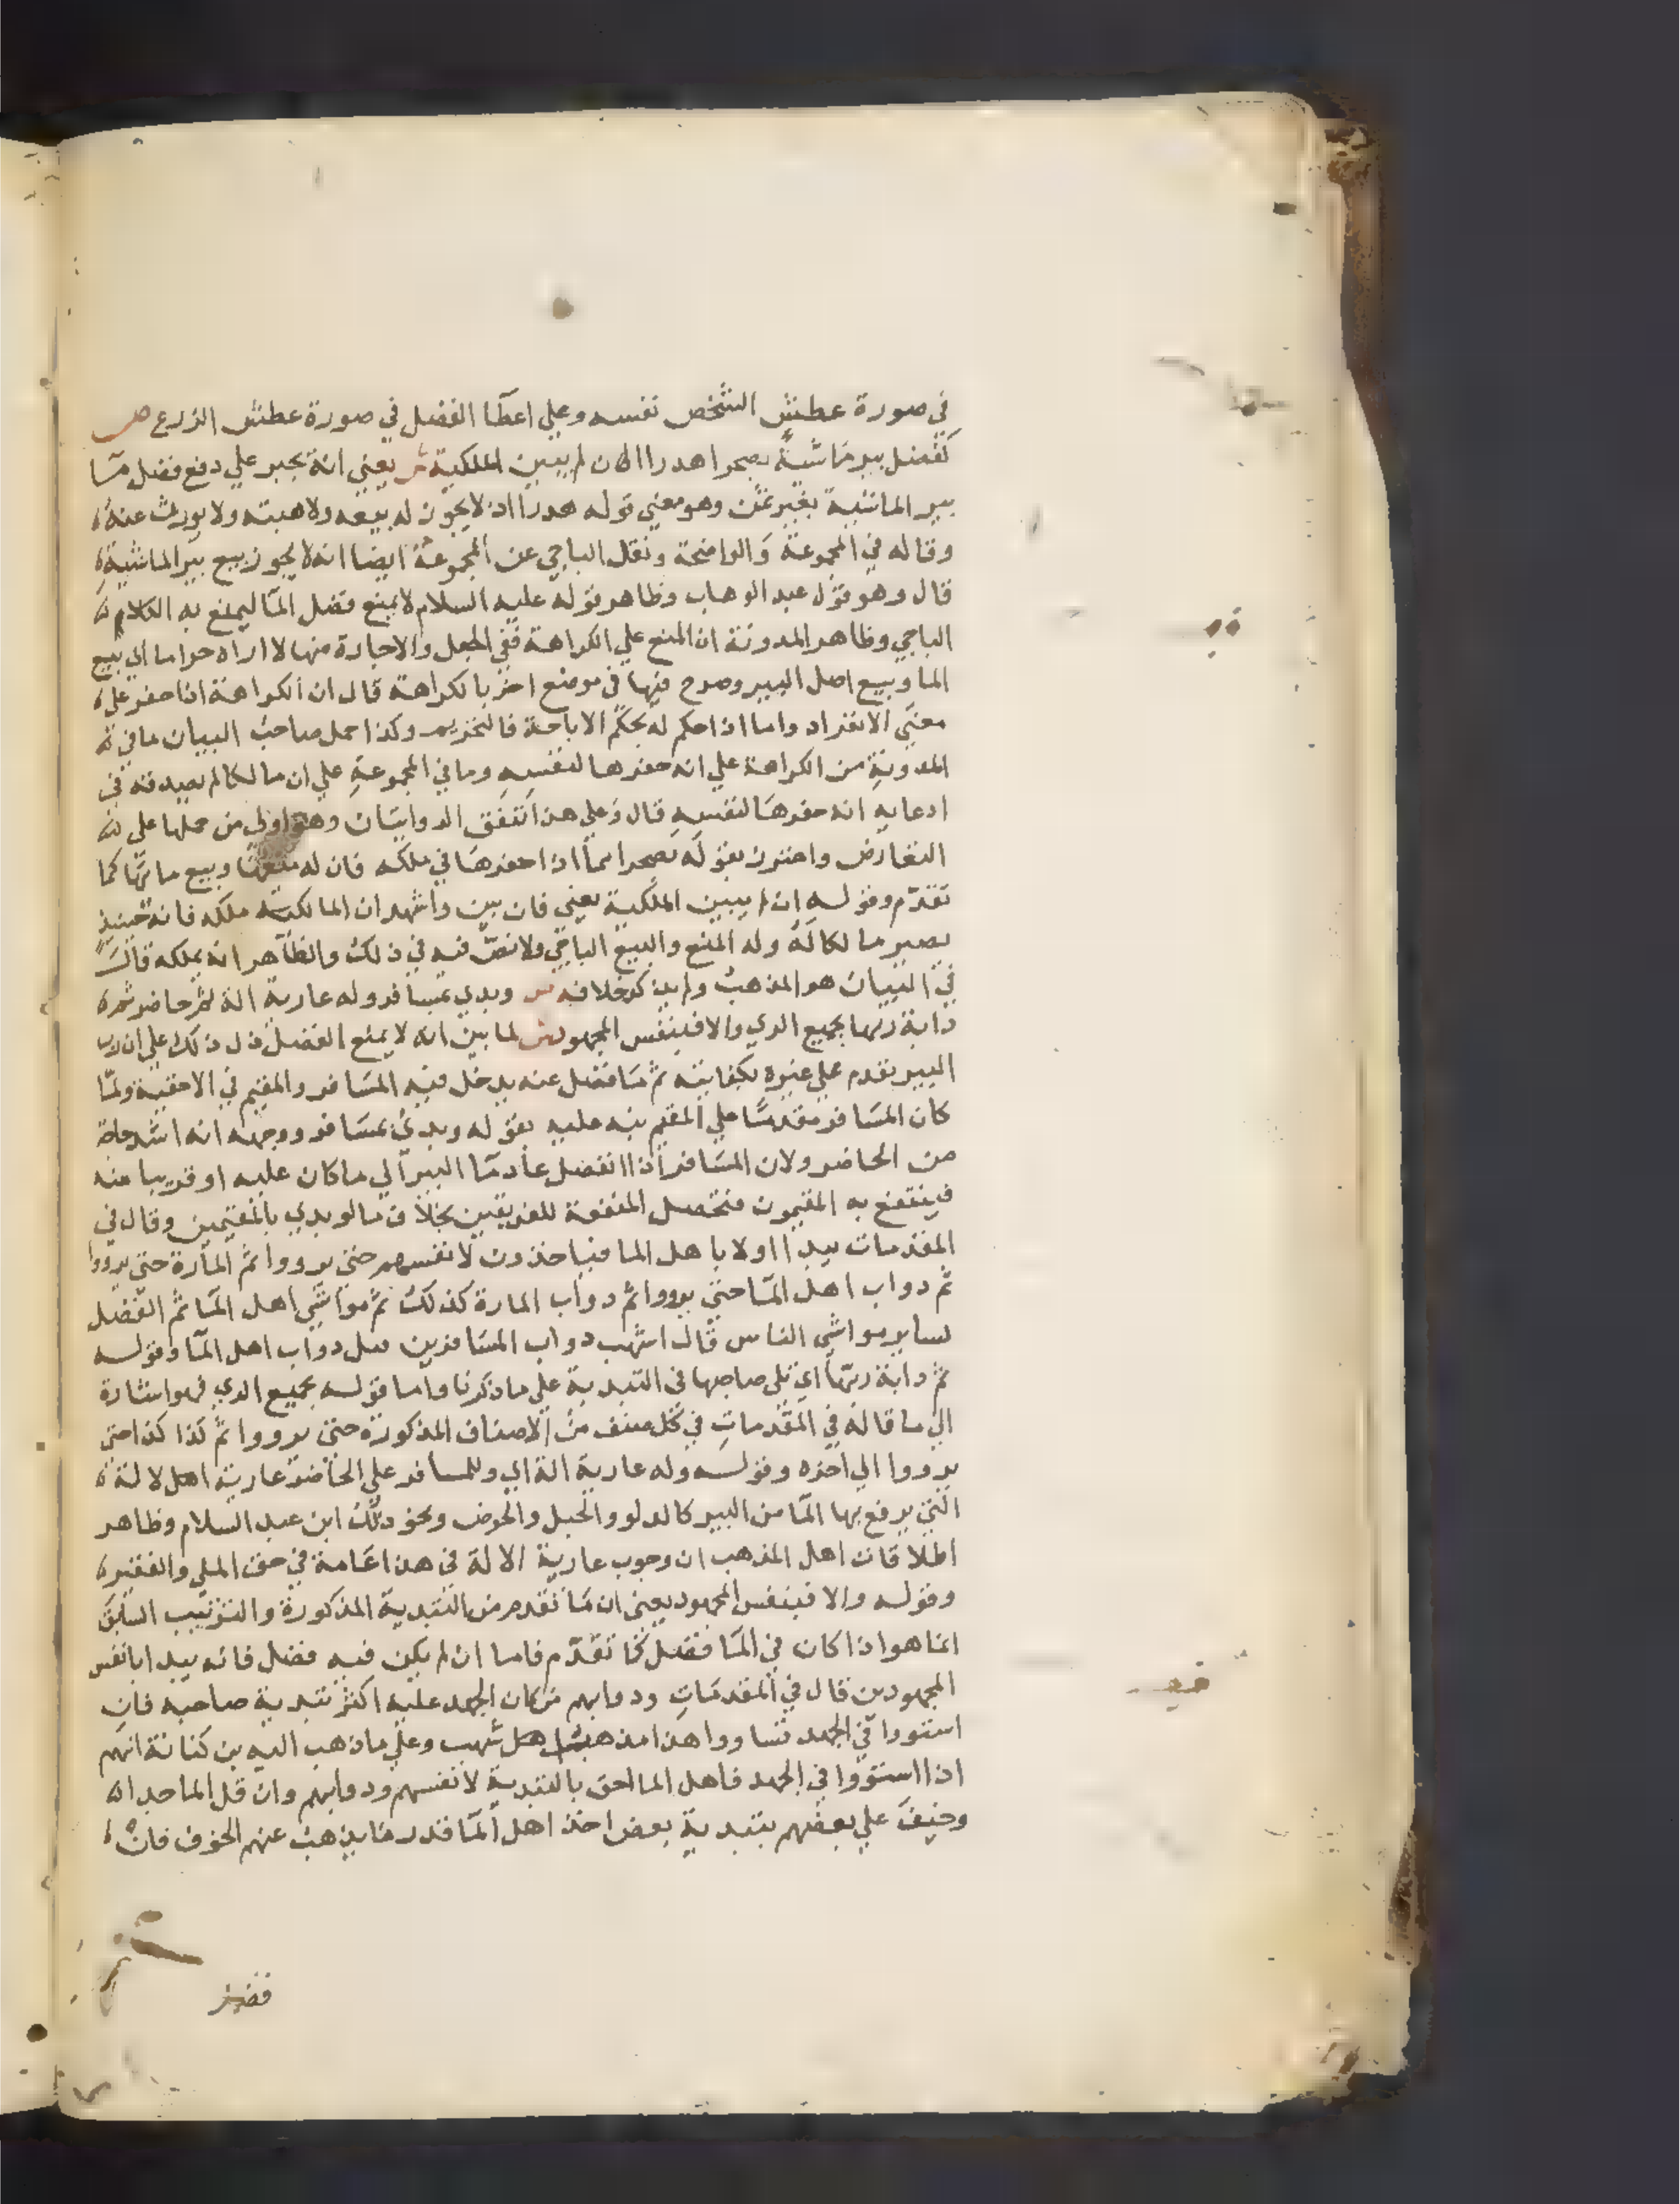 في صورة عطش الشخص نفسه وعلي اعطا الفضل في صورة عطش الزرع ص
كفضل بير ماشية بصحرا هدرا ان لم يبين الملكية ش يعني انه يجبر علي دفع فضل ما
بير الماشية بغير ثمن وهو معني قوله هدرا اذ لا يجوز له بيعه ولا هبته ولا يورث عنه
وقاله في المجموعة والواضحة ونقل الباجي عن المجموعة ايضا انه لا يجوز بيع بير الماشية
قال وهو قول عبد الوهاب وظاهر قوله عليه السلام لا يمنع فضل الما ليمنع به الكلا
الباجي وظاهر المدونة ان المنع علي الكراهة ففي الجعل والاجارة منها لا اراه حراما اي بيع
الما وبيع اصل البير وصرح فيها في موضع اخر بالكراهة قال ان الكراهة اذا حفر علي
معني الانفراد واما اذا حكم له بحكم الاباحة فالتحريم وكذا حمل صاحب البيان ما في
المدونة من الكراهة علي انه حفرها لنفسه وما في المجموعة علي ان مالكا لم يصدقه في
ادعايه انه حفرها لنفسه قال وعلي هذا تتفق الروايتان وهو اولي من حملها علي
التعارض واحترز بقوله بصحرا مما اذا حفرها في ملكه فان له منعها وبيع مائها كما
تقدم وقوله ان لم يبين الملكية يعني فان بين واشهد ان المالكية ملكه فانه حينيذ
يصير مالكا له وله المنع والبيع الباجي ولا نص فيه في ذلك والظاهر انه يملكه قال
في البيان هو المذهب ولم يذكر خلافه ص وبدي بمسافر وله عارية الة ثم حاضر ثم
دابة ربها بجميع الري والا فبنفس المجهود ش لما بين انه لا يمنع الفضل دل ذلك علي ان رب
البير يقدم علي غيره بكفايته ثم ما فضل عنه يدخل فيه المسافر والمقيم في الاحقية ولما
كان المسافر مقدما علي المقيم نبه عليه بقوله وبدي بمسافر ووجهه انه اشد حاجة
من الحاضر ولان المسافر اذا انفصل عاد ما البير الي ما كان عليه او قريبا منه
فينتفع به المقيمون فتحصل المنفعة للفريقين بخلاف ما لو بدي بالمقيمين وقال في
المقدمات يبدا اولا باهل الما فياخذون لانفسهم حتي يرووا ثم المارة حتي يرووا
ثم دواب اهل الما حتي يرووا ثم دواب المارة كذلك ثم مواشي اهل الما ثم الفضل
لساير مواشي الناس قال اشهب دواب المسافرين قبل دواب اهل الما وقوله
ثم دابة ربها اي تلي صاحبها في التبدية علي ما ذكرنا واما قوله بجميع الري فهو اشارة
الي ما قاله في المقدمات في كل صنف من الاصناف المذكورة حتي يرووا ثم كذا كذا حتي
يرووا الي اخره وقوله وله عارية الة اي وللمسافر علي الحاضر عارية اهل لالة
التي يرفع بها الما من البير كالدلو والحبل والحوض ونحو ذلك ابن عبد السلام وظاهر
اطلاقات اهل المذهب ان وجوب عارية الالة في هذا عامة في حق الملي والفقير
وقوله والا فبنفس المجهود يعني ان ما تقدم من التبدية المذكورة والترتيب السابق
انما هو اذا كان في الما فضل كما تقدم فاما ان لم يكن فيه فضل فانه يبدا بانفس
المجهودين قال في المقدمات ودوابهم من كان الجهد عليه اكثر بتبدية صاحبه فان
استووا في الجهد تساووا هذا مذهب اهل شهب وعلي ما ذهب اليه بن كنانة انهم
اذا استووا في الجهد فاهل الما احق بالتبدية لانفسهم ودوابهم وان قل الما جدا
وخيف علي بعضهم بتبدية بعض اخذ اهل الما قدر ما يذهب عنهم الخوف فان
فضل